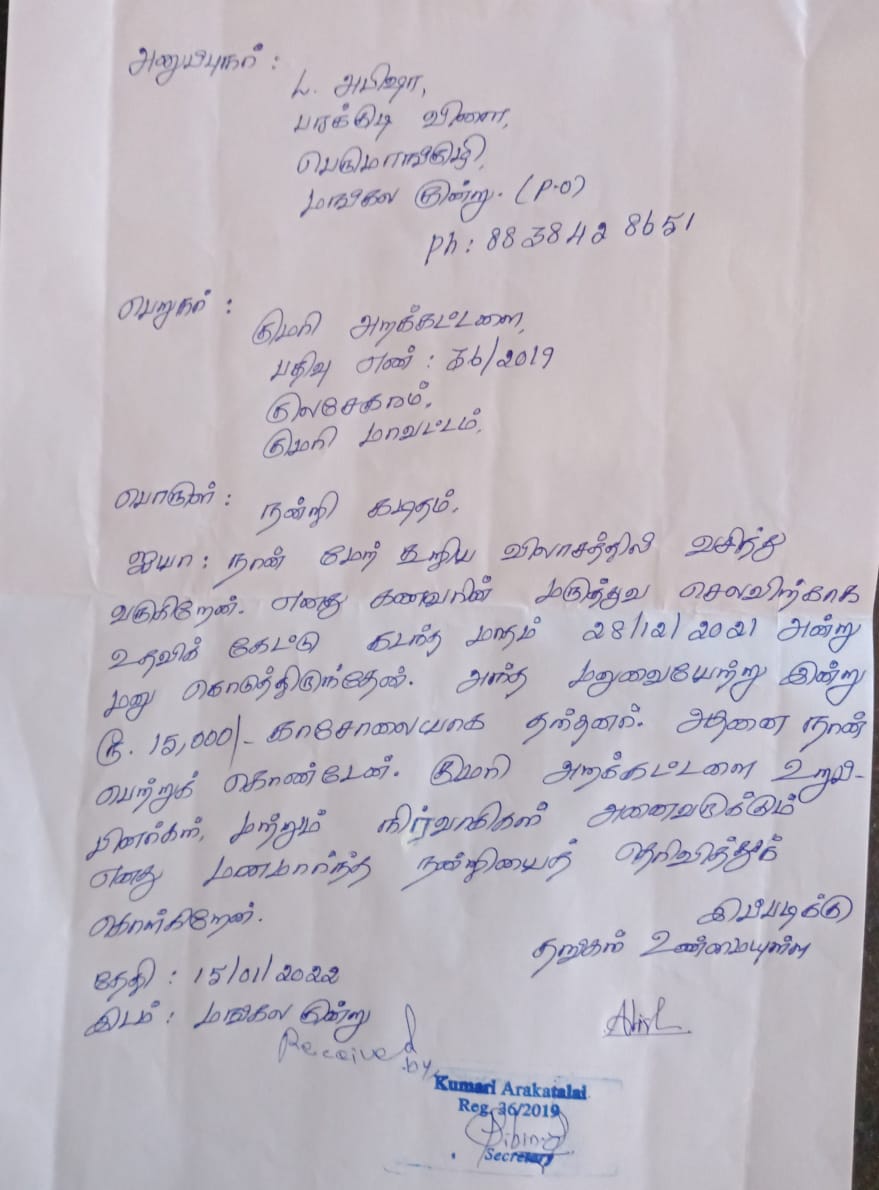 அனுப்புநர் :
L. அபிஷா,
பரக்குடி விளை,
பெருமாங்குழி,
மங்கல குன்று. (P.O)
Ph : 88 3842 8651
பெறுநர் :
குமரி அறக்கட்டளை,
பதிவு எண் : 36/2019
குலசேகரம்,
குமரி மாவட்டம்.
பொருள் : நன்றி கடிதம்.
ஐயா : நான் மேற் கூறிய விலாசத்தில் வசித்து
வருகிறேன். எனது கணவரின் மருத்துவ செலவிற்காக
உதவிக் கேட்டு கடந்த மாதம் 28/12/2021 அன்று
மனு கொடுத்திருந்தேன். அந்த மனுவையேற்று இன்று
ரூ. 15,000/- காசோலையாக தந்தனர். அதனை நான்
பெற்றுக் கொண்டேன். குமரி அறக்கட்டளை உறுப்-
பினர்கள், மற்றும் நிர்வாகிகள் அனைவருக்கும்
எனது மனமார்ந்த நன்றியைத் தெரிவித்துக்
கொள்கிறேன்.
இப்படிக்கு
தங்கள் உண்மையுள்ள
தேதி : 15/01/2022
இடம் : மங்கல குன்று
Received by
Kumari Arakatalai
Reg. 36/2019
Secretary